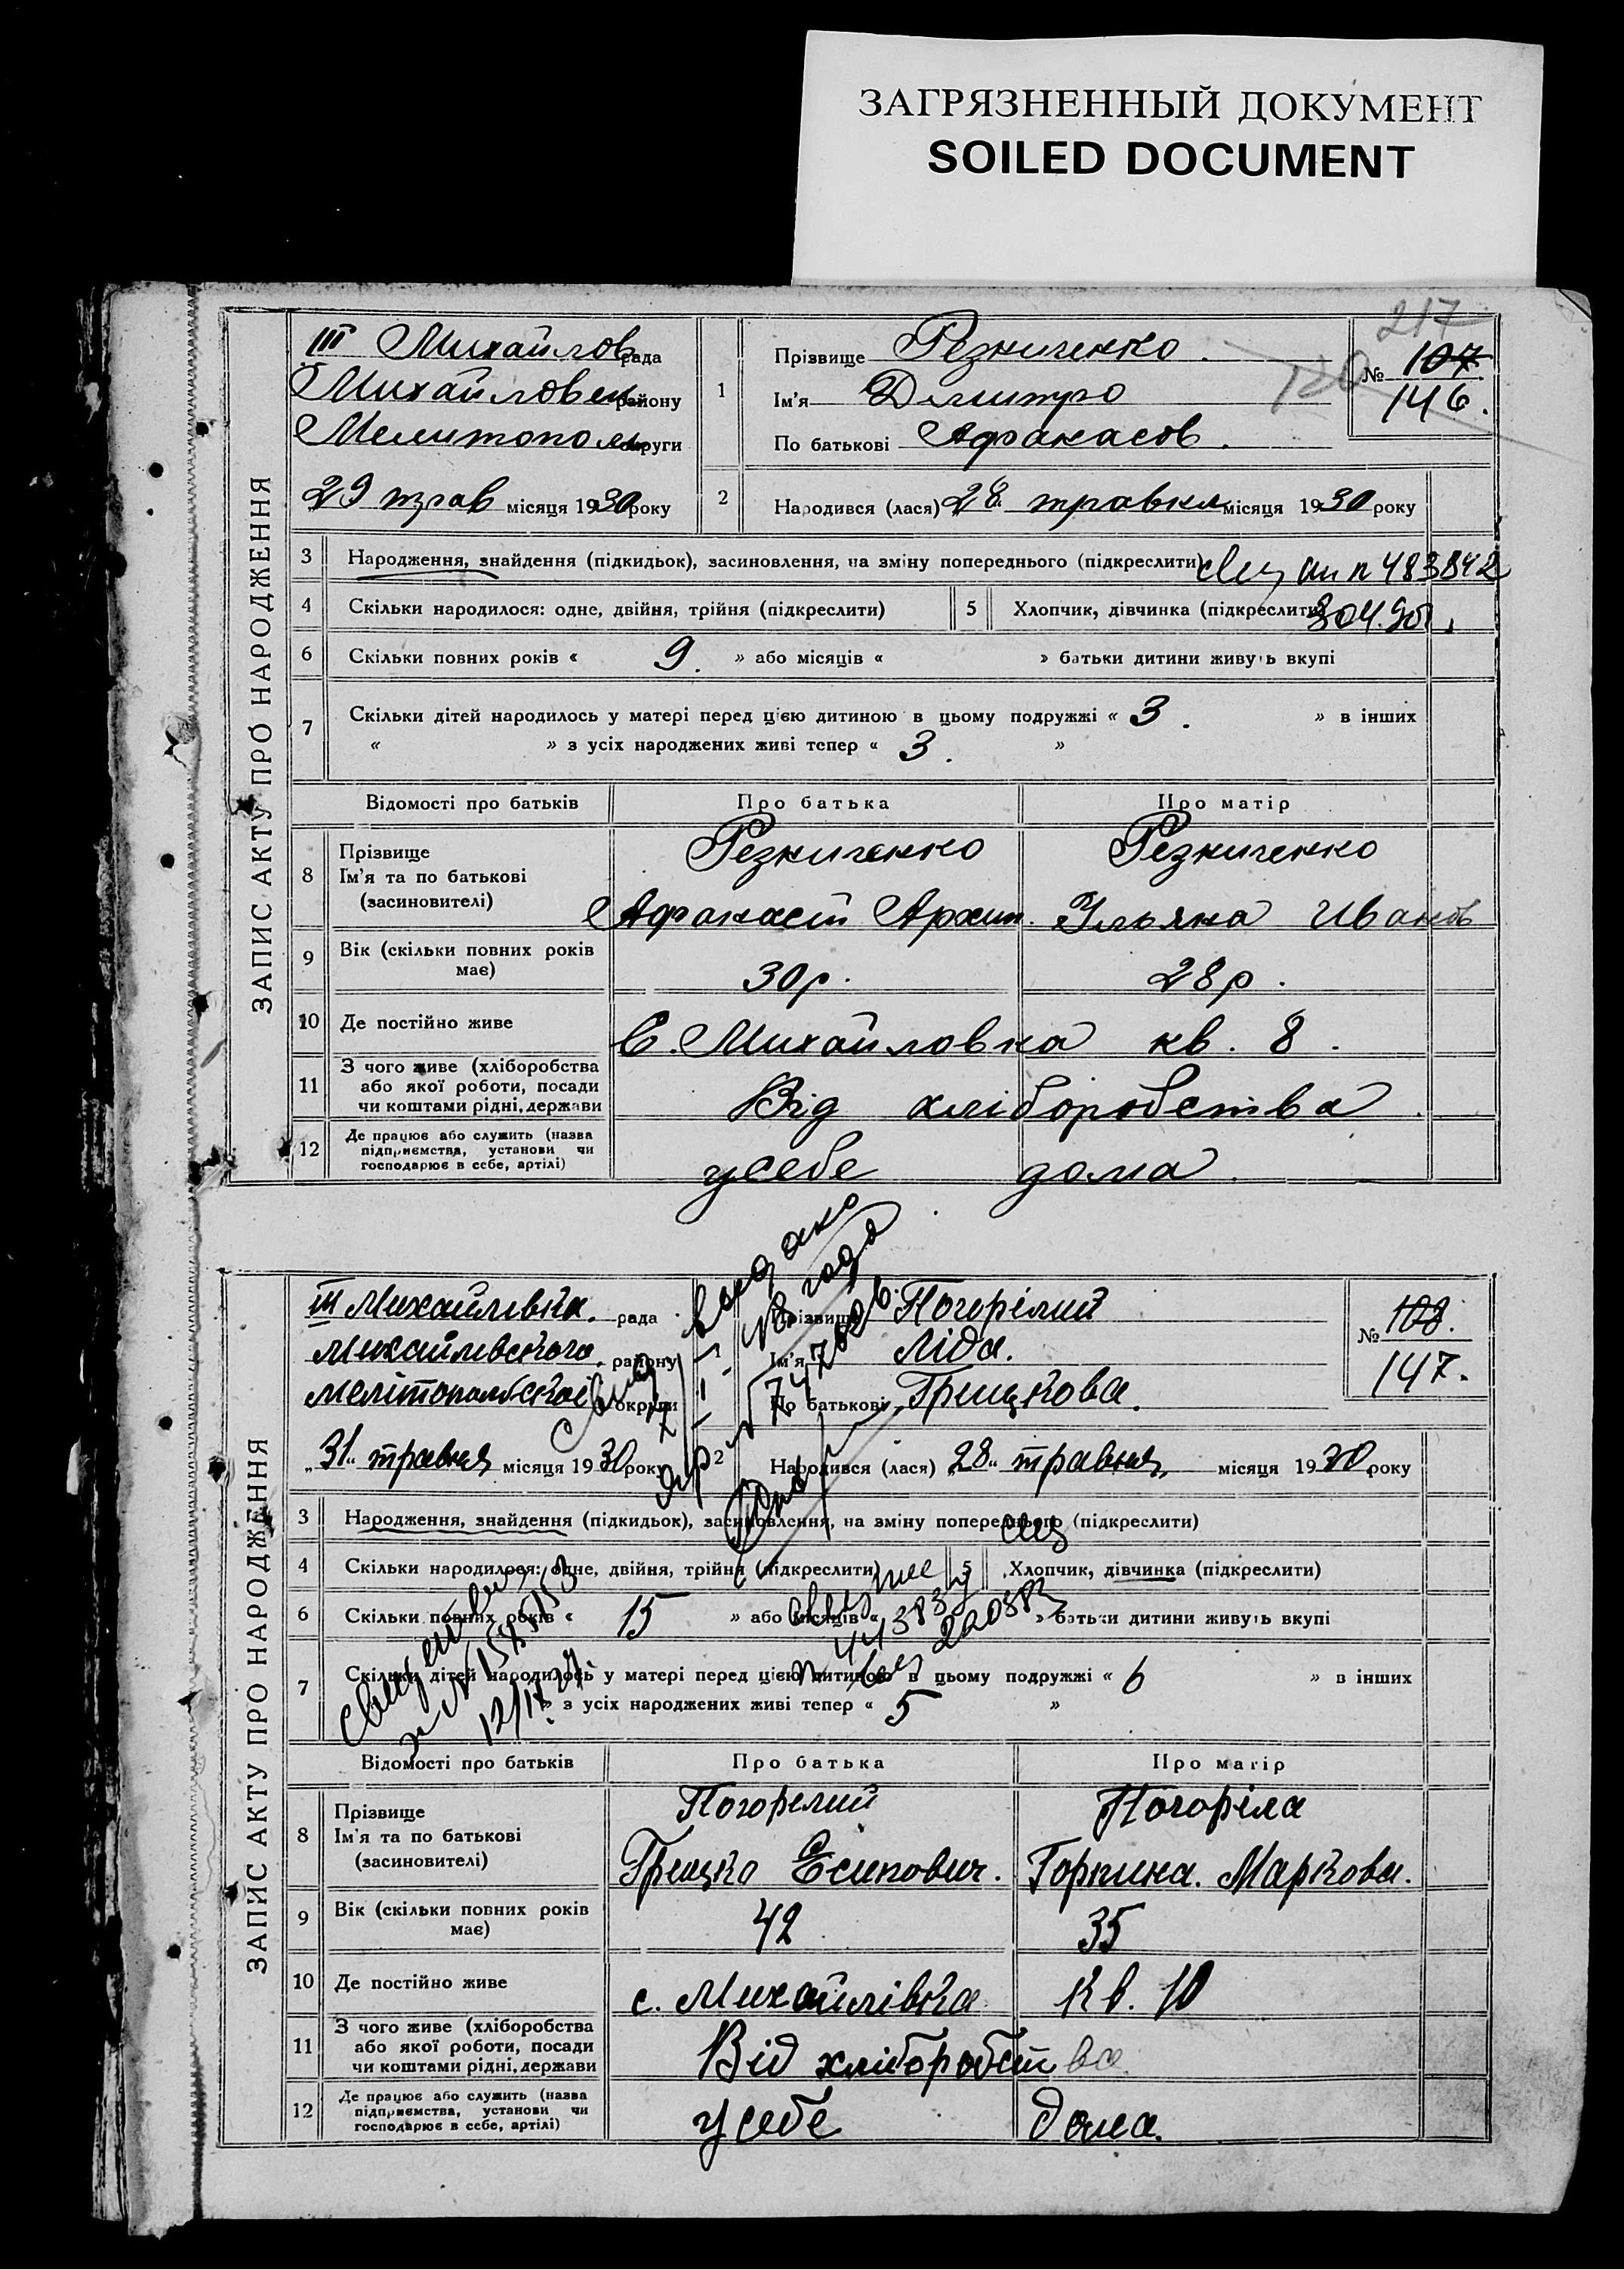 ЗАГРЯЗНЕННЫЙ ДОКУМЕНТ
SOILED DOCUMENT
217
ЗАПИС АКТУ ПРО НАРОДЖЕННЯ
III Михайлов рада
Михайловск району
Мелитополь округи
29 трав місяця 1930 року
1 Прізвище Резниченко.
Ім'я Дмитро
По батькові Афанасов.
№ 107
146.
2 Народився (лася) 28 травня місяця 1930 року
3 Народження, знайдення (підкидьок), засиновлення, на зміну попереднього (підкреслити) 483842
4 Скільки народилося: одне, двійня, трійня (підкреслити) 5 Хлопчик, дівчинка (підкреслити)
6 Скільки повних років « 9. » або місяців « » батьки дитини живуть вкупі
7 Скільки дітей народилось у матері перед цією дитиною в цьому подружжі « 3. » в інших
« » з усіх народжених живі тепер « 3. »
Відомості про батьків Про батька Про матір
8 Прізвище Резниченко Резниченко
Ім'я та по батькові
(засиновителі) Афанасий Архип. Ульяна Иванов
9 Вік (скільки повних років має) 30р. 28р.
10 Де постійно живе С. Михайловка кв. 8.
11 З чого живе (хліборобства
або якої роботи, посади
чи коштами рідні, держави Від хліборобства.
12 Де працює або служить (назва
підприємства, установи чи
господарює в себе, артілі) усебе дома.
ЗАПИС АКТУ ПРО НАРОДЖЕННЯ
III Михайлівка. рада
Михайлівского району
Мелітопольскої округи
"31" травня місяця 1930 року
1 Прізвище Погорілий
Ім'я Ліда.
По батькові Грицкова.
№ 108.
147.
2 Народився (лася) "28" травня місяця 1930 року
3 Народження, знайдення (підкидьок), засиновлення, на зміну попереднього (підкреслити)
4 Скільки народилося: одне, двійня, трійня (підкреслити) 5 Хлопчик, дівчинка (підкреслити)
6 Скільки повних років « 15 » або місяців « » батьки дитини живуть вкупі
7 Скільки дітей народилось у матері перед цією дитиною в цьому подружжі « 6 » в інших
» з усіх народжених живі тепер « 5 »
Відомості про батьків Про батька Про матір
8 Прізвище Погорелий Погоріла
Ім'я та по батькові
(засиновителі) Грицко Есипович. Горпина. Маркова.
9 Вік (скільки повних років має) 42 35
10 Де постійно живе с. Михайлівка кв. 10
11 З чого живе (хліборобства
або якої роботи, посади
чи коштами рідні, держави Від хліборобства
12 Де працює або служить (назва
підприємства, установи чи
господарює в себе, артілі) у себе дома.